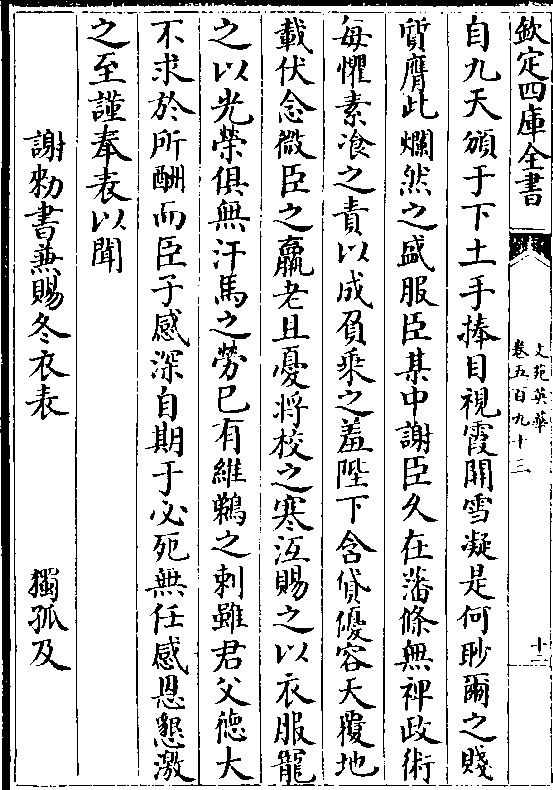 欽定四庫全書
文苑英華
卷五百九十三
十三
自九天頒于下土手捧目視霞開雪凝是何眇爾之賤
質膺此爛然之盛服臣某中謝臣久在藩條無裨政術
每懼素飡之責以成負乗之羞陛下含貸優容天覆地
載伏念微臣之羸老且憂將校之寒沍賜之以衣服寵
之以光榮俱無汗馬之勞已有維鵜之刺雖君父德大
不求於所酬而臣子感深自期于必死無任感恩懇激
之至謹奉表以聞
謝勑書兼賜冬衣表　獨孤及